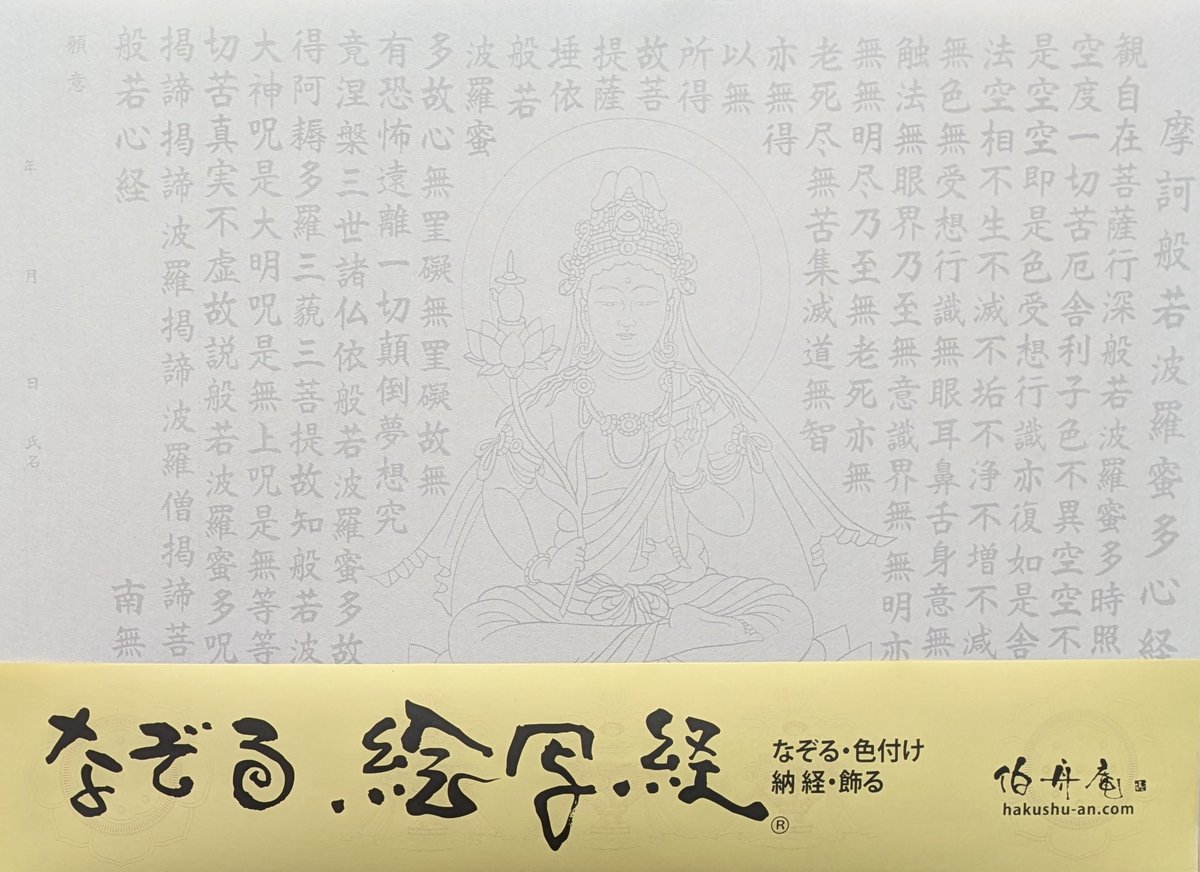 摩訶般若波羅蜜多心経
観自在菩薩行深般若波羅蜜多時照
空度一切苦厄舎利子色不異空空不
是空空即是色受想行識亦復如是舎
法空相不生不滅不垢不浄不増不減
無色無受想行識無眼耳鼻舌身意無
触法無眼界乃至無意識界無無明亦
無無明尽乃至無老死亦無
老死尽無苦集滅道無智
亦無得
以無
所得
故菩
提薩
埵依
般若
波羅蜜
多故心無罣礙無罣礙故無
有恐怖遠離一切顛倒夢想究
竟涅槃三世諸仏依般若波羅蜜多故
得阿耨多羅三藐三菩提故知般若波
大神呪是大明呪是無上呪是無等等
切苦真実不虚故説般若波羅蜜多呪
掲諦掲諦波羅掲諦波羅僧掲諦菩
般若心経 南無
願意
年 月 日 氏名
なぞる・絵写経®
なぞる・色付け
納経・飾る
伯舟庵
hakushu-an.com